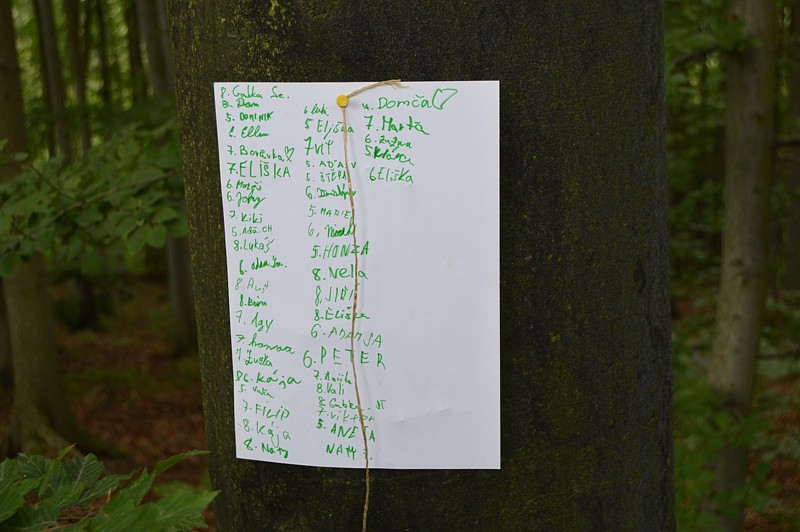 8. Gabka Se.
8. Dom
5. DOMINIK
8. Ellen
7. Borůvka
7. ELIŠKA
6. Matěj
6. Johy
7. Kiki
5. Ada. CH
8. Lukáš
6.
8.
8.
7. Agy
7. honza
7. Zuzka
6. Kája
5.
7. FILIP
8. Kája
8. Naty
6.
5 Eliška
7 VÍT
5. ADAM V
5. ŠTĚPÁN
6.
5. MARIE
6.
5. HONZA
8. Nela
8. JIŘÍ
8. Eliška
6. ADAM JA
6. PETER
7.
8. Vali
8. Gabka
7. viktor
5. ANETA
NATY.
Domča
7. Marta
6. Zuzka
5. Klára
6 Eliška